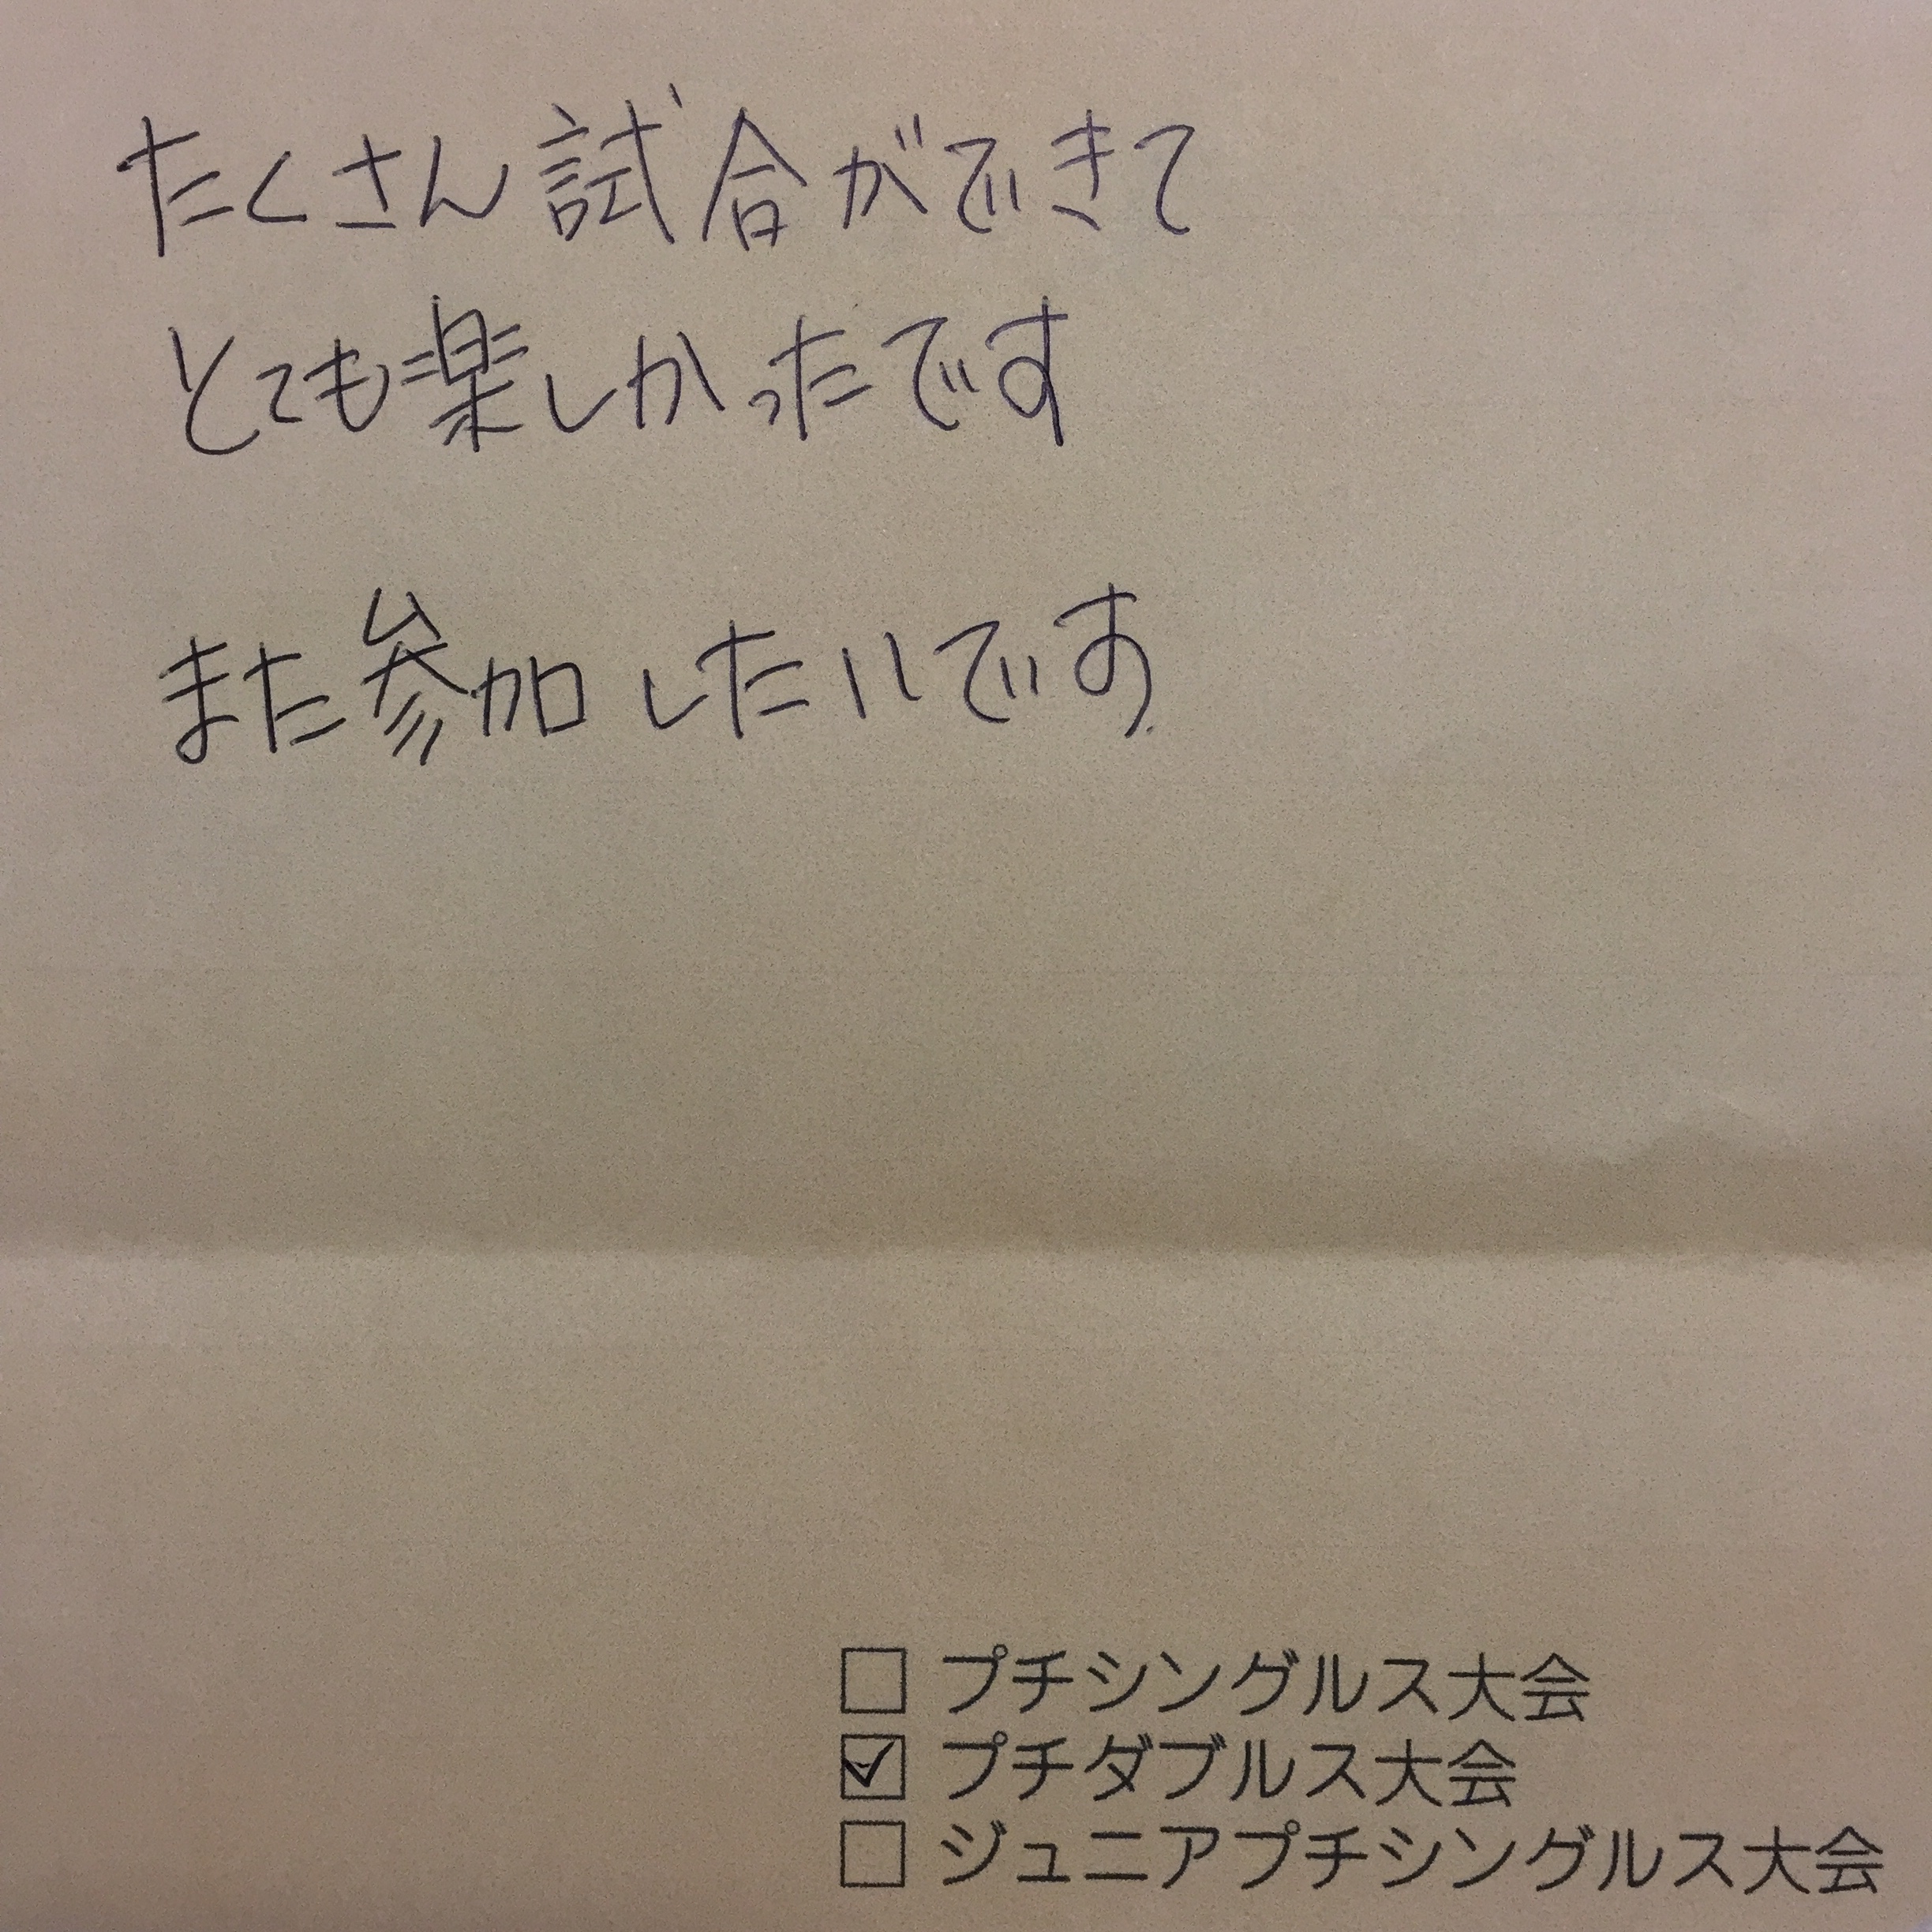 たくさん試合ができて
とても楽しかったです
また参加したいです
□ プチシングルス大会
☑ プチダブルス大会
□ ジュニアプチシングルス大会